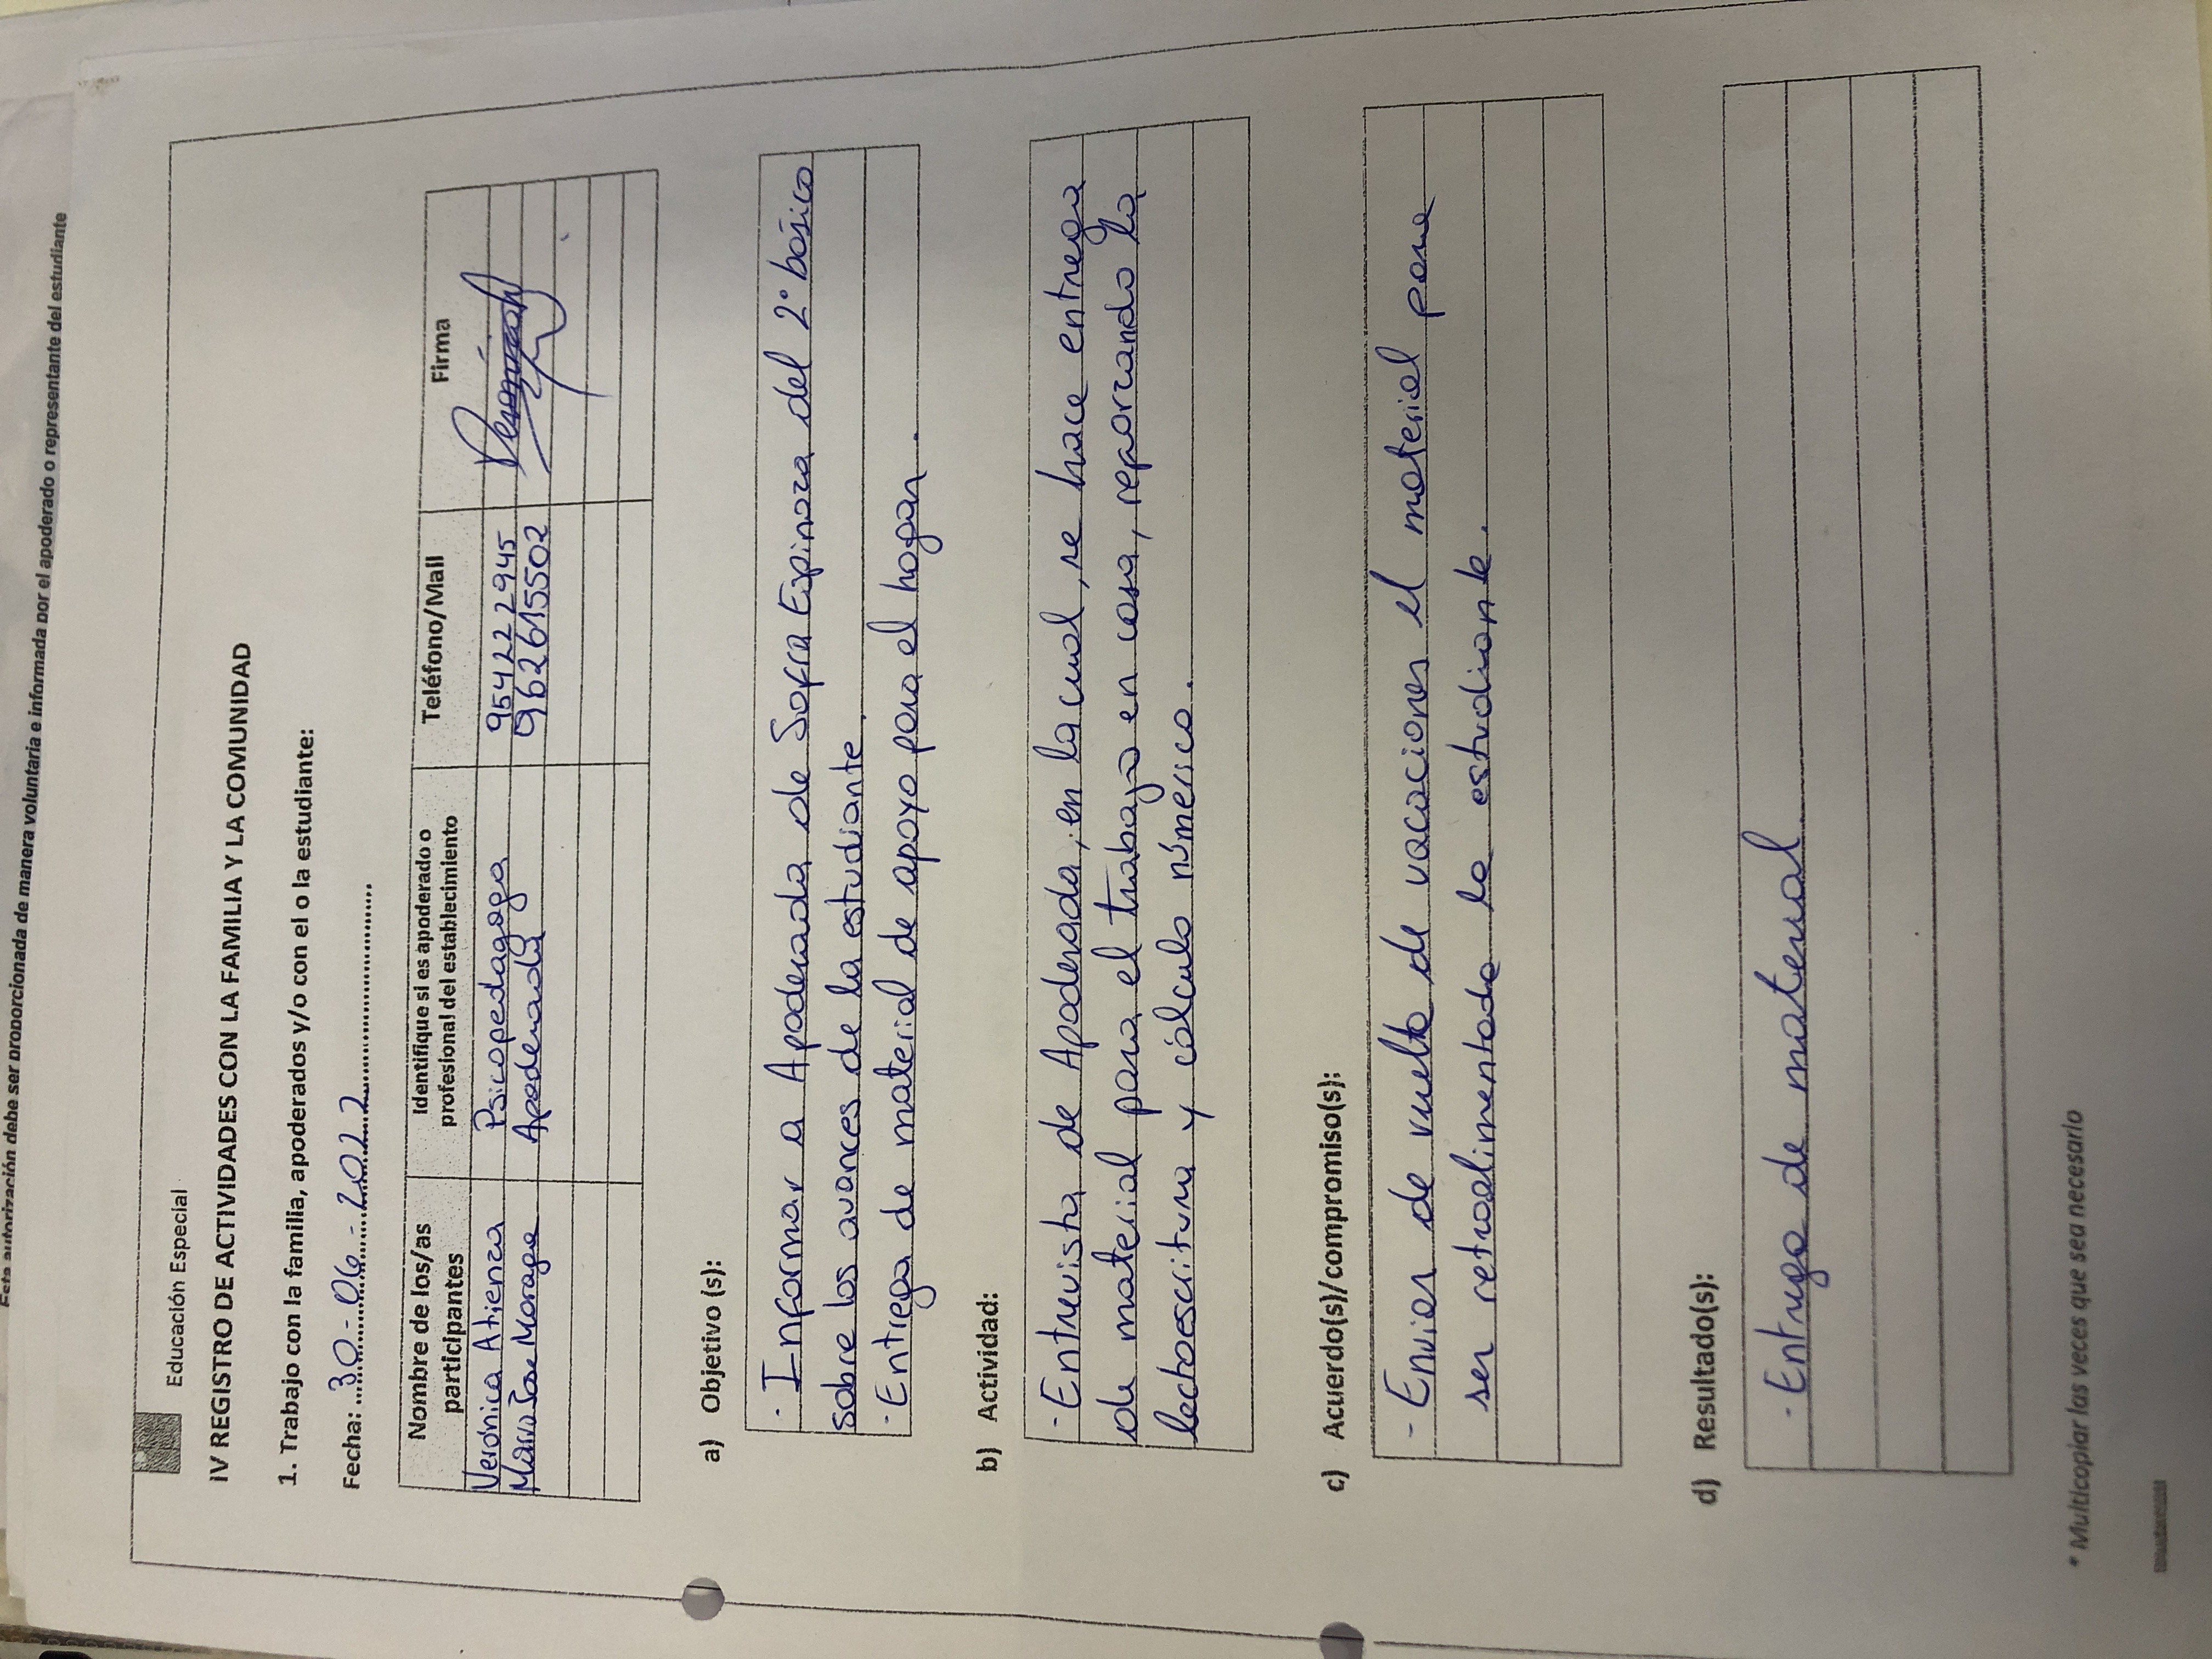 Esta autorización debe ser proporcionada de manera voluntaria e informada por el apoderado o representante del estudiante
Educación Especial
IV REGISTRO DE ACTIVIDADES CON LA FAMILIA Y LA COMUNIDAD
1. Trabajo con la familia, apoderados y/o con el o la estudiante:
Fecha: 30-06-2022
Nombre de los/as participantes
Identifique si es apoderado o profesional del establecimiento
Teléfono/Mail
Firma
Verónica Atienza Psicopedagoga 954222945
María José Moraga Apoderada 962615502
a) Objetivo (s):
- Informar a Apoderada de Sofía Espinoza del 2° básico
sobre los avances de la estudiante.
- Entrega de material de apoyo para el hogar.
b) Actividad:
- Entrevista de Apoderada, en la cual, se hace entrega
de material para el trabajo en casa, reforzando la
lectoescritura y cálculo númerico.
c) Acuerdo(s)/compromiso(s):
- Enviar de vuelta de vacaciones el material para
ser retroalimentada la estudiante.
d) Resultado(s):
- Entrega de material
* Multicopiar las veces que sea necesario